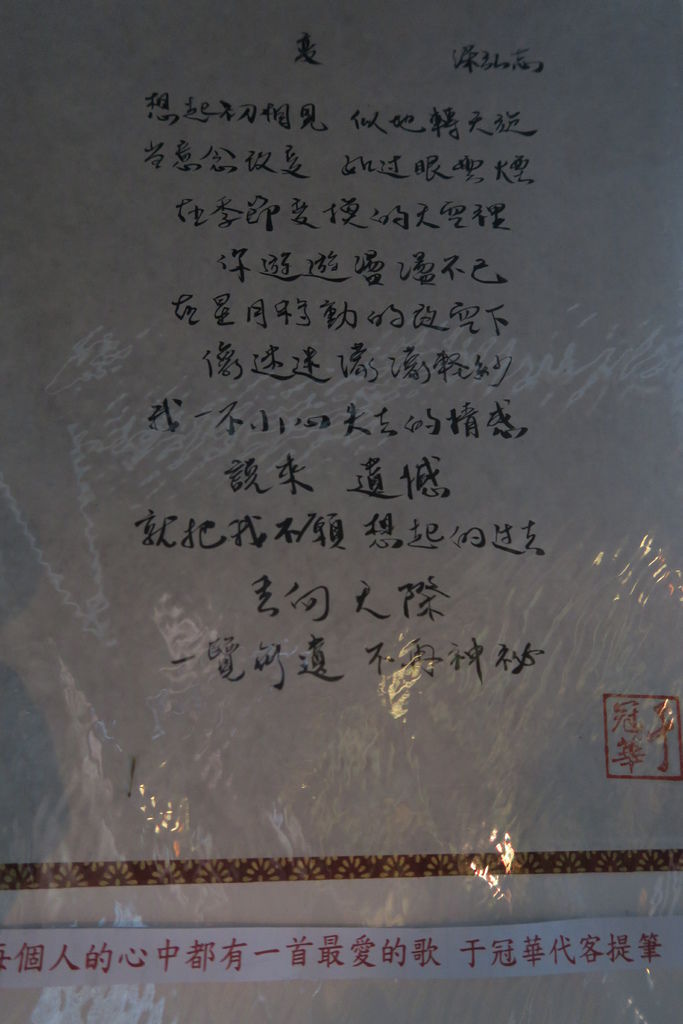 变 梁弘志
想起初相見 似地轉天旋
当意念改变 如过眼雲煙
在季節变換的天空裡
你遊遊盪盪不已
在星月移動的改空下
像迷迷濛濛輕紗
我一不小心失去的情感
說來 遺憾
就把我不願想起的过去
去向天際
一覽無遺 不再神祕
于冠華
每個人的心中都有一首最愛的歌 于冠華代客提筆